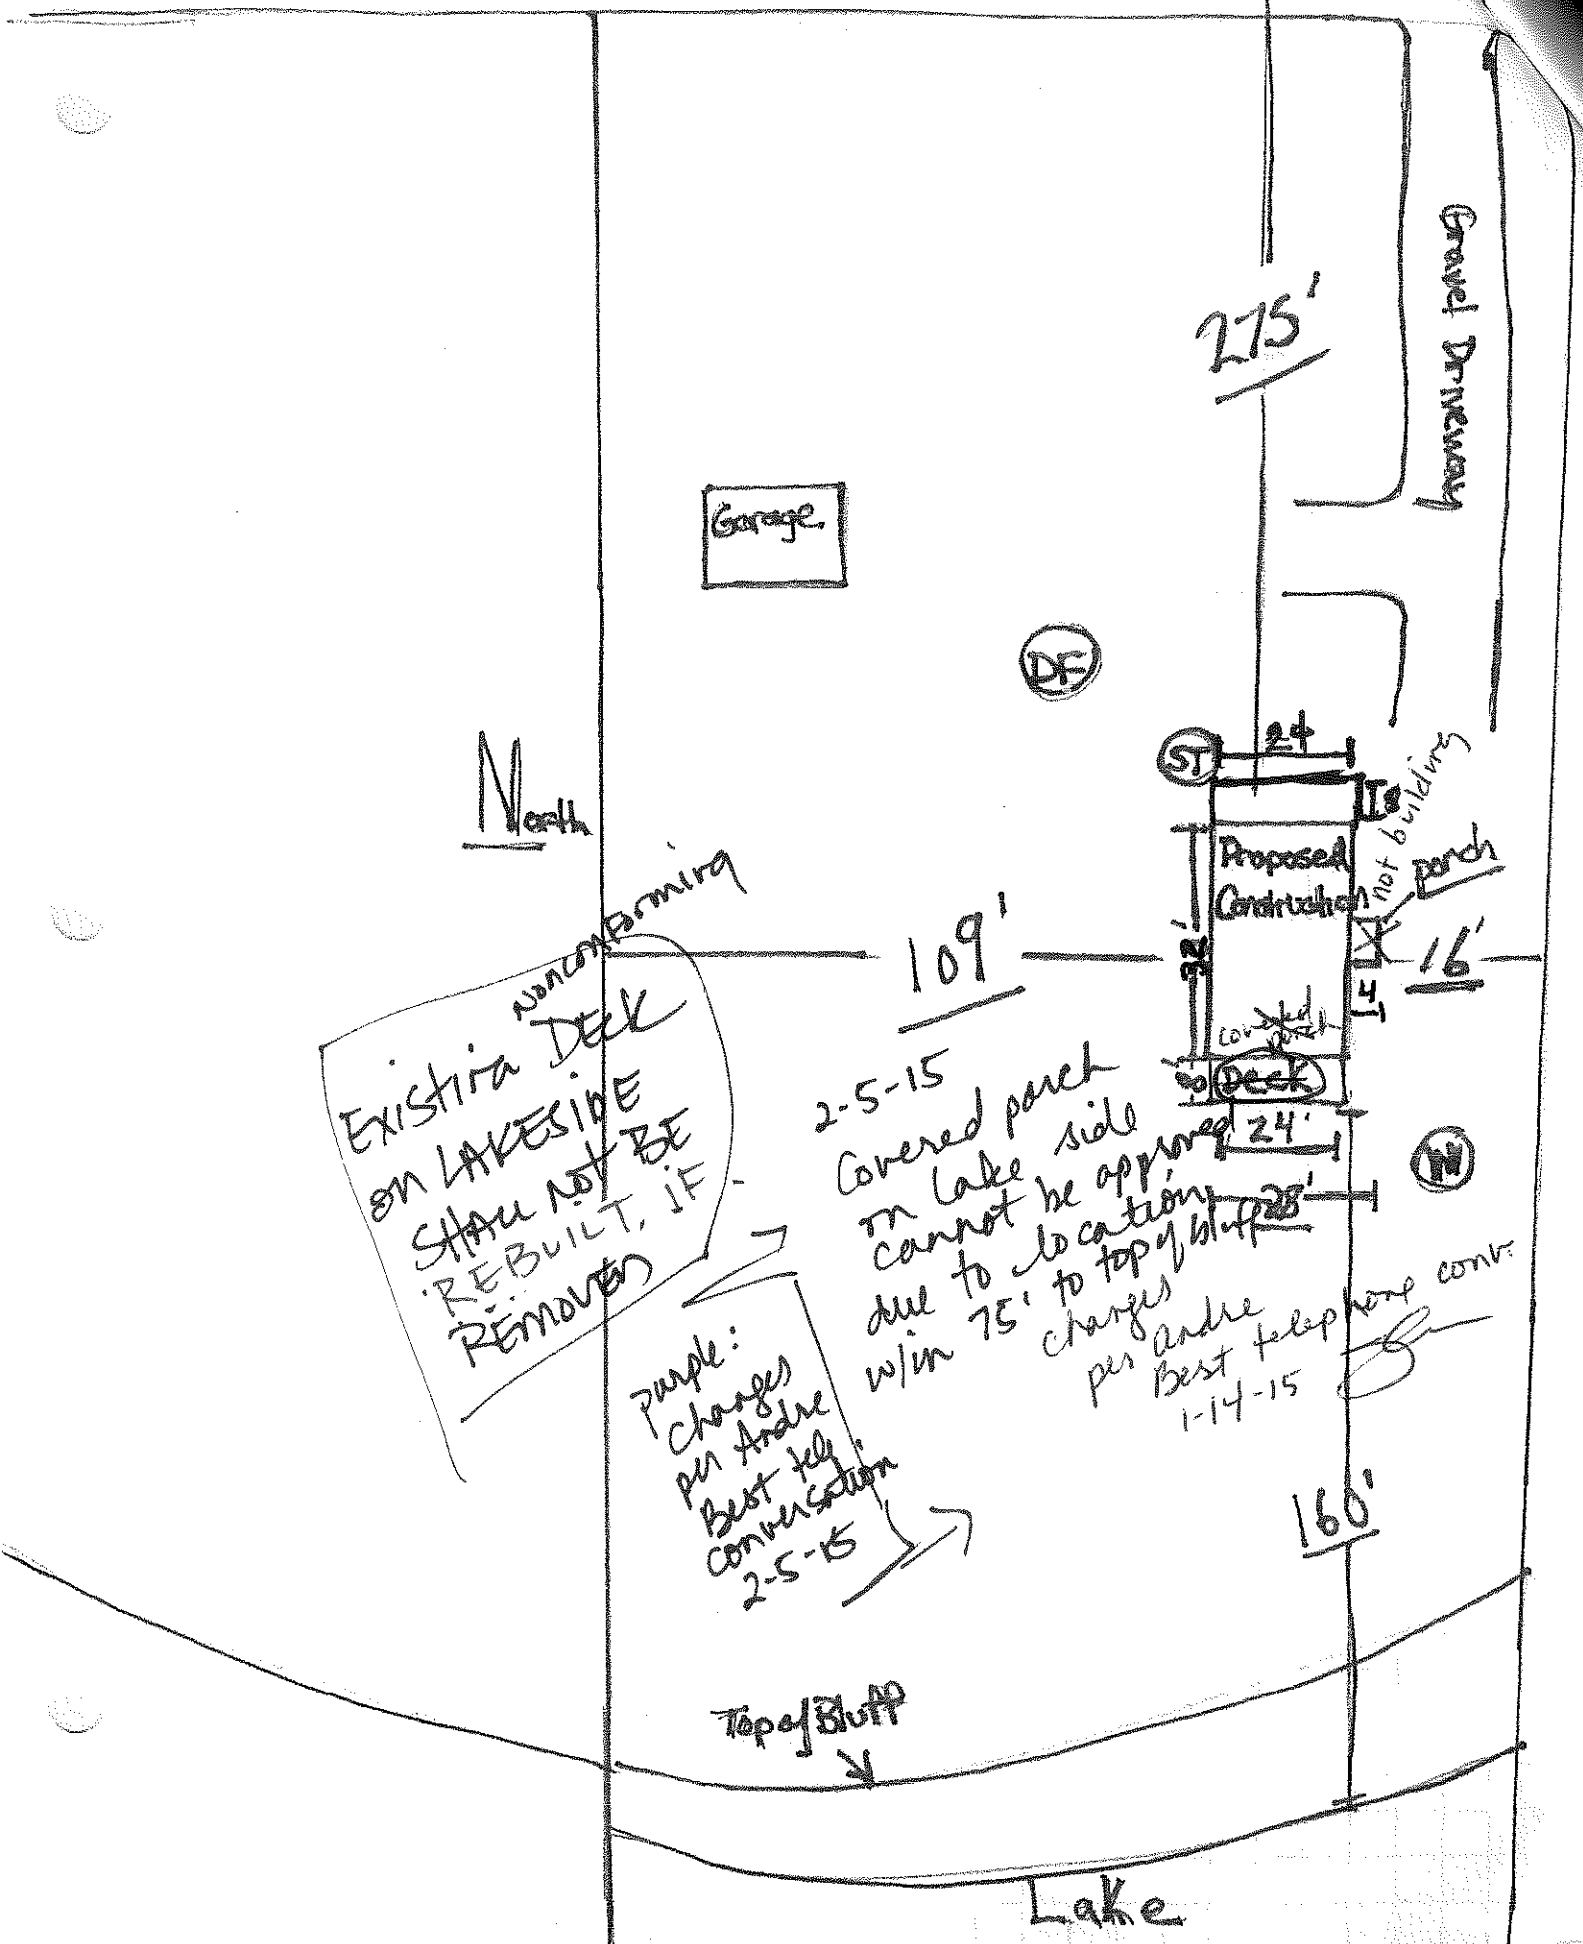 275'
Gravel Driveway
Garage
DF
ST
24
8
not building
North
Proposed
Construction
porch
32'
109'
16'
4
covered
porch
8'
Deck
24'
28'
W
nonconforming
Existing Deck
on LAKESIDE
SHALL NOT BE
REBUILT, IF
REMOVED
2-5-15
Covered porch
on lake side
cannot be approved
due to location
w/in 75' to top of bluff
changes
per Andre
Best telephone conv.
1-14-15
purple:
changes
per Andre
Best tely
conversation
2-5-15
160'
Top of Bluff
Lake